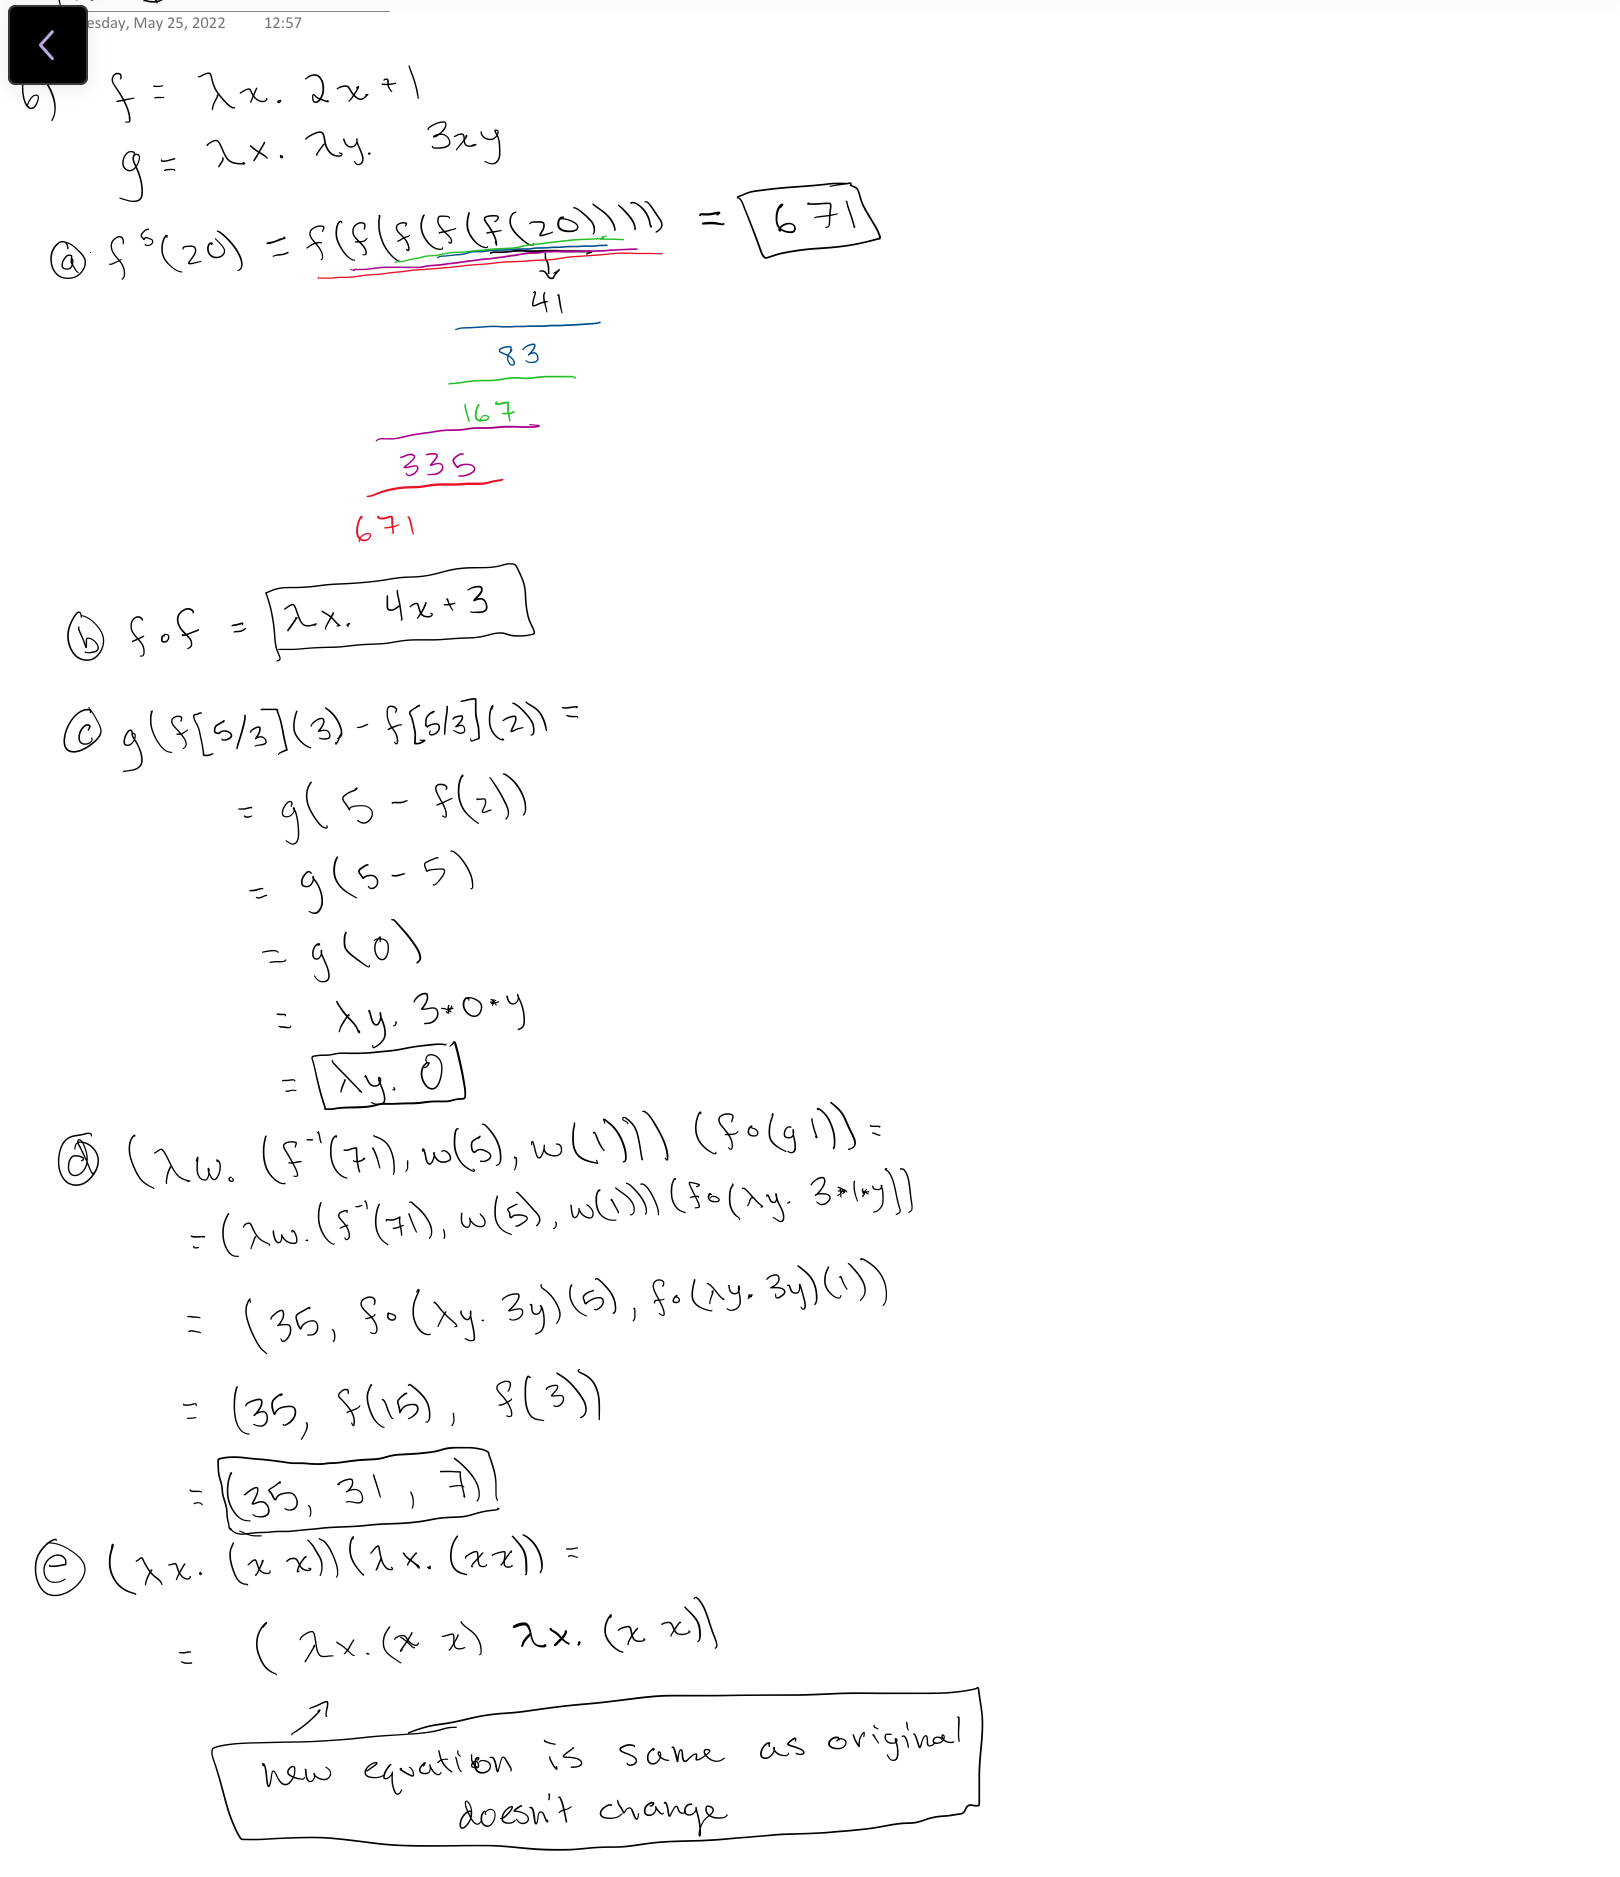 esday, May 25, 2022 12:57
6) f = λx. 2x+1
g = λx. λy. 3xy
ⓐ f⁵(20) = f(f(f(f(f(20))))) = 671
41
83
167
335
671
ⓑ f∘f = λx. 4x+3
ⓒ g(f[5/3](3) - f[5/3](2)) =
= g(5 - f(2))
= g(5-5)
= g(0)
= λy. 3*0*y
= λy. 0
ⓓ (λw. (f⁻¹(71), w(5), w(1))) (f∘(g 1)) =
= (λw. (f⁻¹(71), w(5), w(1))) (f∘(λy. 3*1*y))
= (35, f∘(λy. 3y)(5), f∘(λy. 3y)(1))
= (35, f(15), f(3))
= (35, 31, 7)
ⓔ (λx. (x x))(λx. (xx)) =
= (λx.(x x) λx. (x x))
new equation is same as original
doesn't change